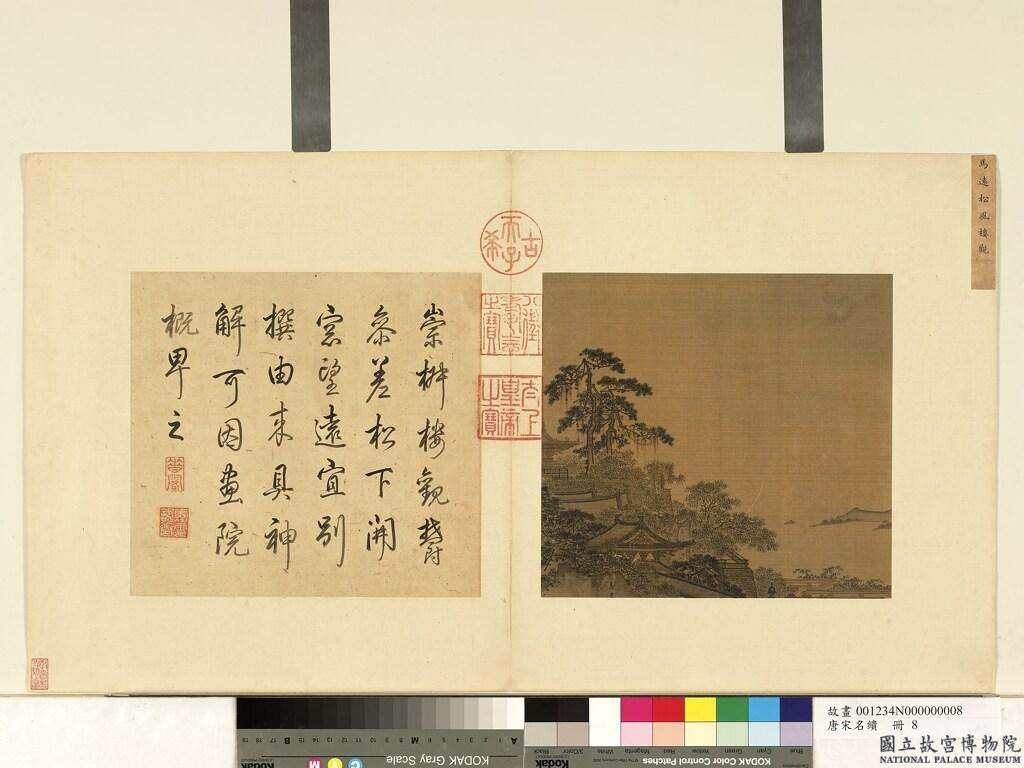 馬遠松風樓觀
古希天子
八徵耄念之寶
太上皇帝之寶
崇椒楼觀鬱
叅差松下開
窓望遠宜別
撰由来具神
解可因畫院
概卑之
故畫 001234N000000008
唐宋名繢 冊 8
國立故宮博物院
NATIONAL PALACE MUSEUM
KODAK Gray Scale
KODAK Color Control Patches
Blue
Cyan
Green
Yellow
Red
Magenta
White
3/Color
Black